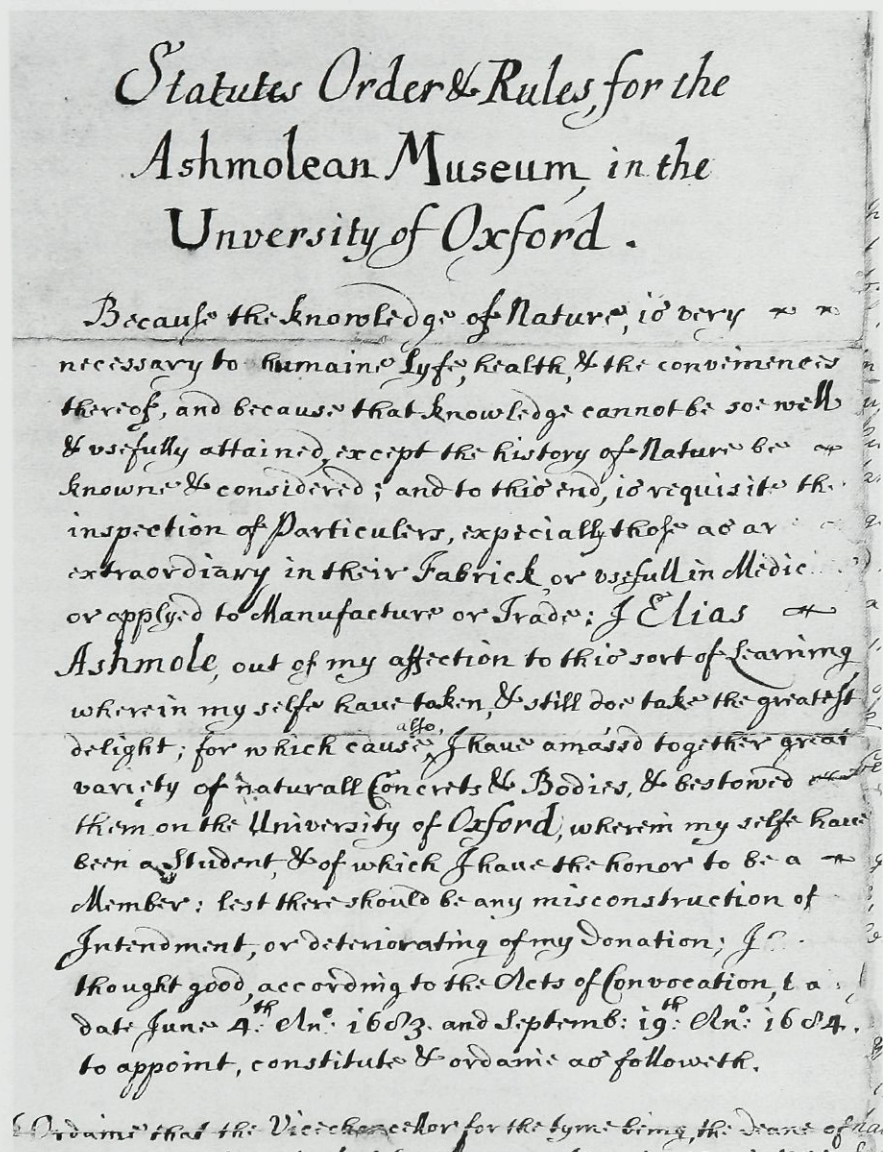 Statutes Order & Rules, for the
Ashmolean Museum, in the
Unversity of Oxford .
Because the knowledge of Nature, is very
necessary to humaine lyfe, health, & the conveniences
thereof, and because that knowledge cannot be soe well
& usefully attained, except the history of Nature be
knowne & considered; and to this end, is requisite the
inspection of Particulers, expecially those as ar
extraordiary in their Fabrick, or usefull in Medic
or applyed to Manufacture or Trade: I Elias
Ashmole, out of my affection to this sort of Learning
wherein my selfe have taken, & still doe take the greatest
also,
delight; for which cause, I have amass'd together great
variety of naturall Concrets & Bodies, & bestowed
them on the University of Oxford, wherein my selfe have
been a Student, & of which I have the honor to be a
Member: lest there should be any misconstruction of
Intendment, or deteriorating of my Donation; I
thought good, according to the Acts of Convocation,
date June 4.th An.o 1683. and Septemb: 19.th An.o 1684.
to appoint, constitute & ordaine as followeth.
Ordaine that the Vicechancellor for the tyme being, the deane of